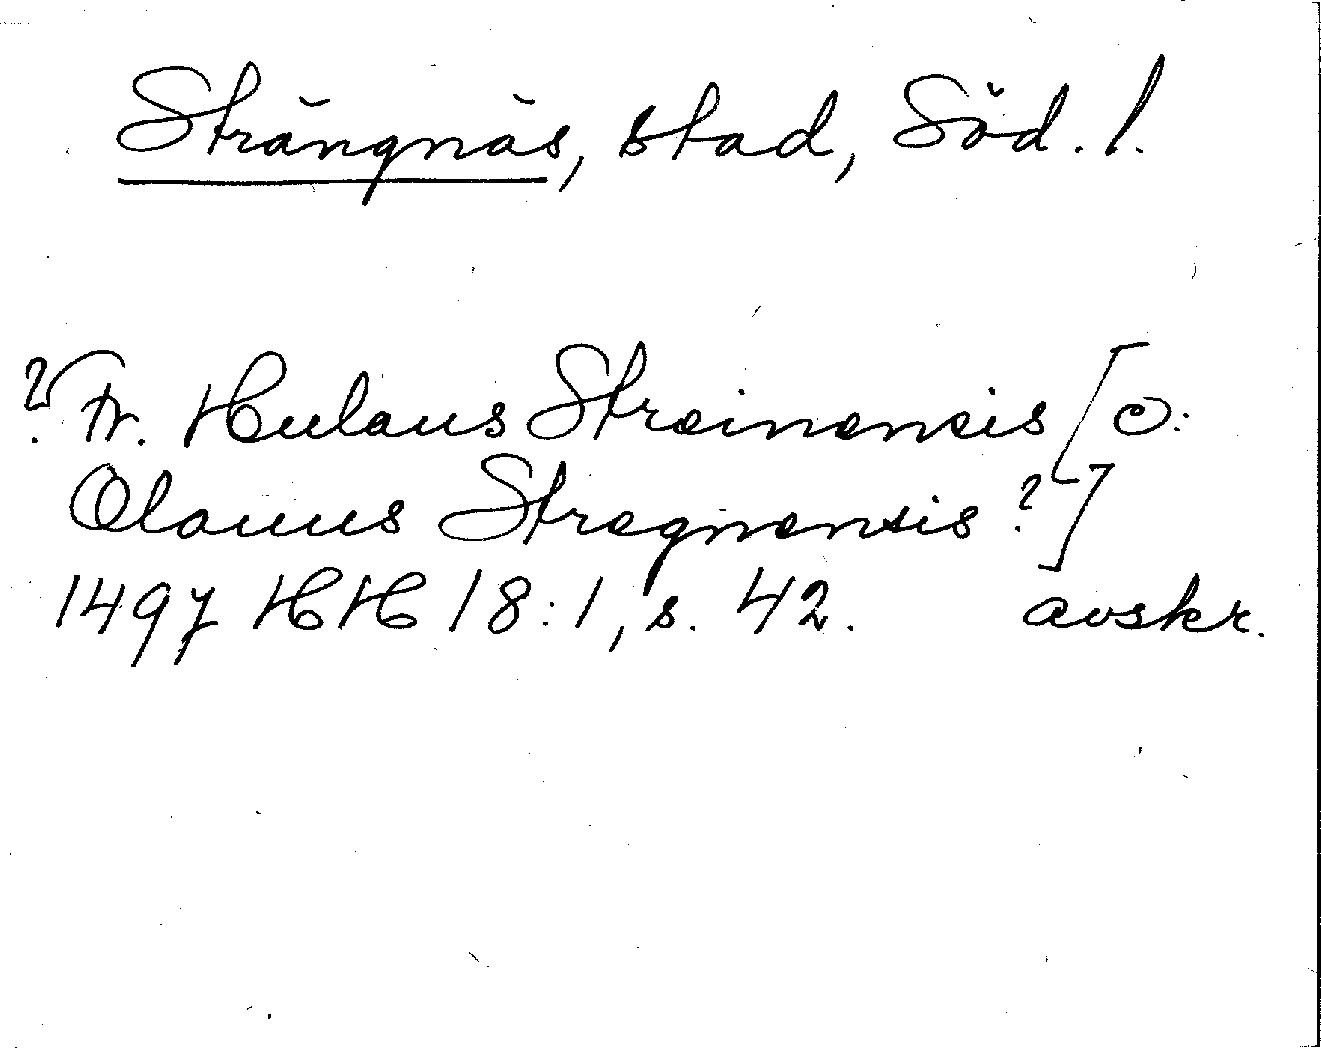 Strängnäs, stad, Söd. l.
? Fr. Hulaus Streinensis [ɔ:
Olauus Stregnensis ?]
1497 HH 18:1, s. 42. avskr.